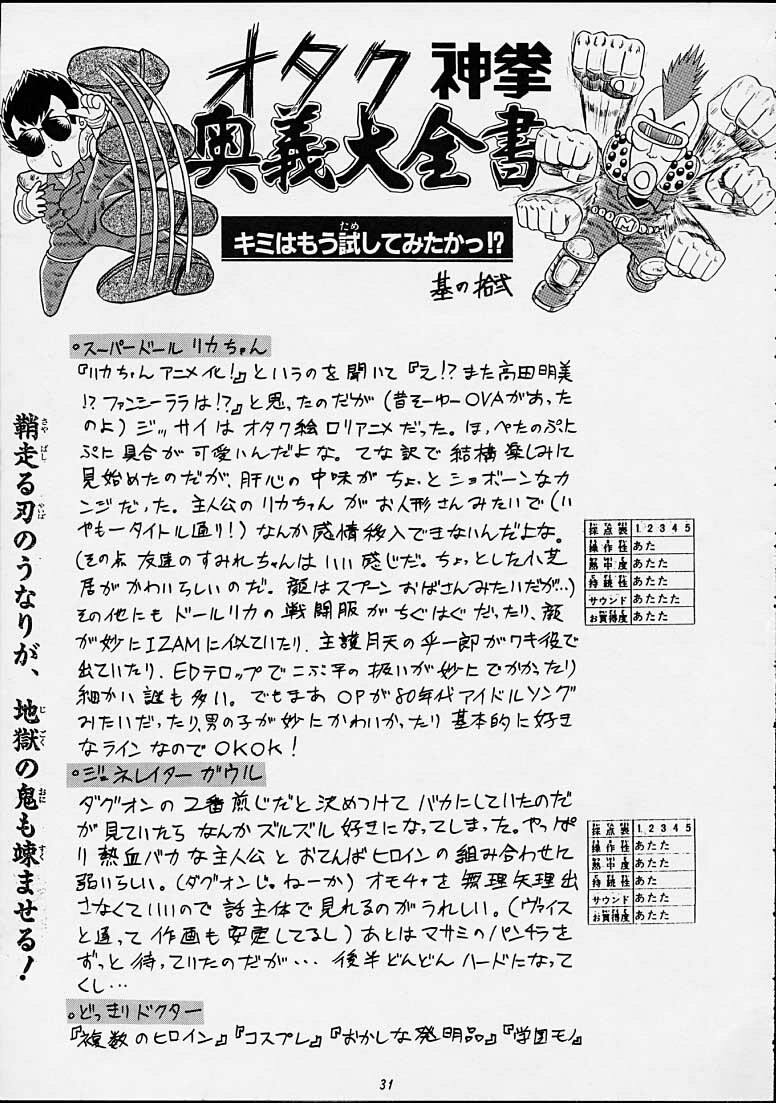 オタク 神拳
奥義大全書
キミはもう試してみたかっ!?
基の拾弐
鞘走る刃のうなりが、地獄の鬼も竦ませる!
。スーパードール リカちゃん
『リカちゃんアニメ化!』というのを聞いて『え!?また高田明美
!? ファンシーララは!?』と思ったのだが(昔そーゆーOVAがあった
のよ)ジッサイはオタク絵ロリアニメだった。ほっぺたのぷに
ぷに具合が可愛いんだよな。てな訳で結構楽しみに
見始めたのだが、肝心の中味がちょっとショボーンなカ
ンジだった。主人公のリカちゃんがお人形さんみたいで(い
やもータイトル通り!)なんか感情移入できないんだよな。
(その点友達のすみれちゃんはいい感じだ。ちょっとした小芝
居がかわいらしいのだ。顔はスプーンおばさんみたいだが…)
その他にもドールリカの戦闘服がちぐはぐだったり、顔
が妙にIZAMに似ていたり、主護月天の乎一郎がワキ役で
出ていたり、EDテロップでこぶ平の扱いが妙にでかかったり
細かい謎も多い。でもまあOPが80年代アイドルソング
みたいだったり、男の子が妙にかわいかったり基本的に好き
なラインなのでOKOK!
採点表 1 2 3 4 5
操作性 あた
熱中度 あたた
持続性 あたた
サウンド あたたた
お買得度 あたた
。ジェネレイターガウル
ダグオンの二番煎じだと決めつけてバカにしていたのだ
が見ていたらなんかズルズル好きになってしまった。やっぱ
り熱血バカな主人公とおてんばヒロインの組み合わせに
弱いらしい。(ダグオンじゃねーか)オモチャを無理矢理出
さなくていいので話主体で見れるのがうれしい。(ヴァイス
と違って作画も安定してるし)あとはマサミのパンチラを
ずっと待っていたのだが… 後半どんどんハードになって
くし…
採点表 1 2 3 4 5
操作性 あたた
熱中度 あたた
持続性 あた
サウンド あたた
お買得度 あたた
。どっきりドクター
『複数のヒロイン』『コスプレ』『おかしな発明品』『学園モノ』
31